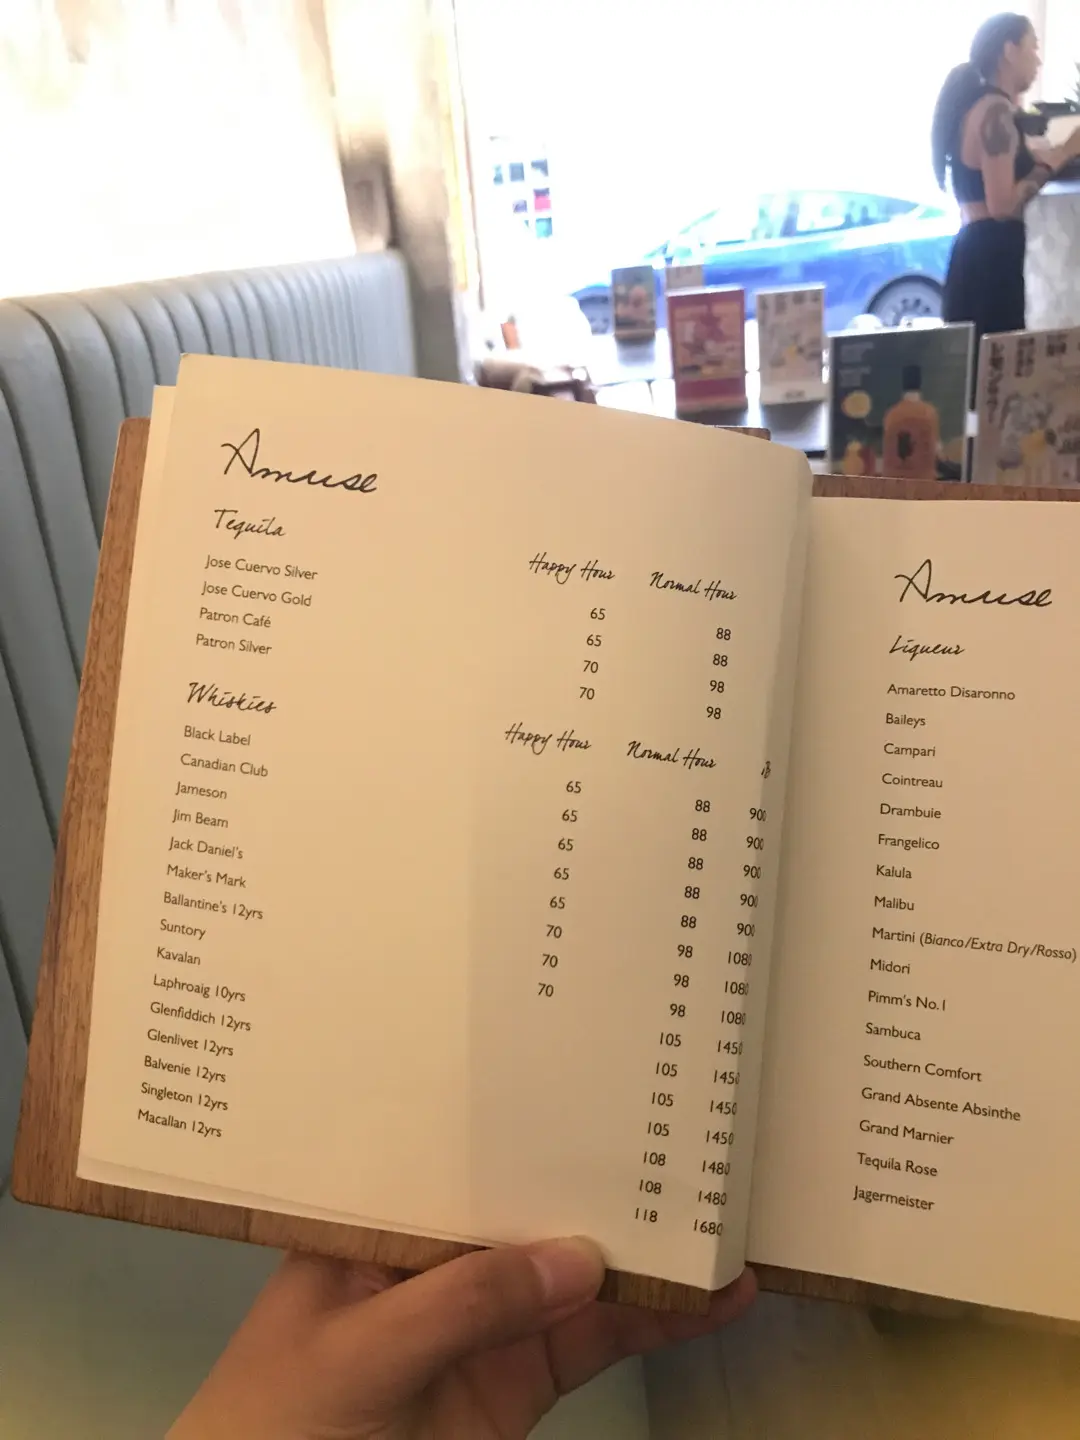 Amuse
Tequila Happy Hour Normal Hour
Jose Cuervo Silver 65 88
Jose Cuervo Gold 65 88
Patron Café 70 98
Patron Silver 70 98
Whiskies Happy Hour Normal Hour
Black Label 65 88 900
Canadian Club 65 88 900
Jameson 65 88 900
Jim Beam 65 88 900
Jack Daniel's 65 88 900
Maker's Mark 70 98 1080
Ballantine's 12yrs 70 98 1080
Suntory 70 98 1080
Kavalan 105 1450
Laphroaig 10yrs 105 1450
Glenfiddich 12yrs 105 1450
Glenlivet 12yrs 105 1450
Balvenie 12yrs 108 1480
Singleton 12yrs 108 1480
Macallan 12yrs 118 1680
Amuse
Liqueur
Amaretto Disaronno
Baileys
Campari
Cointreau
Drambuie
Frangelico
Kalula
Malibu
Martini (Bianco/Extra Dry/Rosso)
Midori
Pimm's No.1
Sambuca
Southern Comfort
Grand Absente Absinthe
Grand Marnier
Tequila Rose
Jagermeister